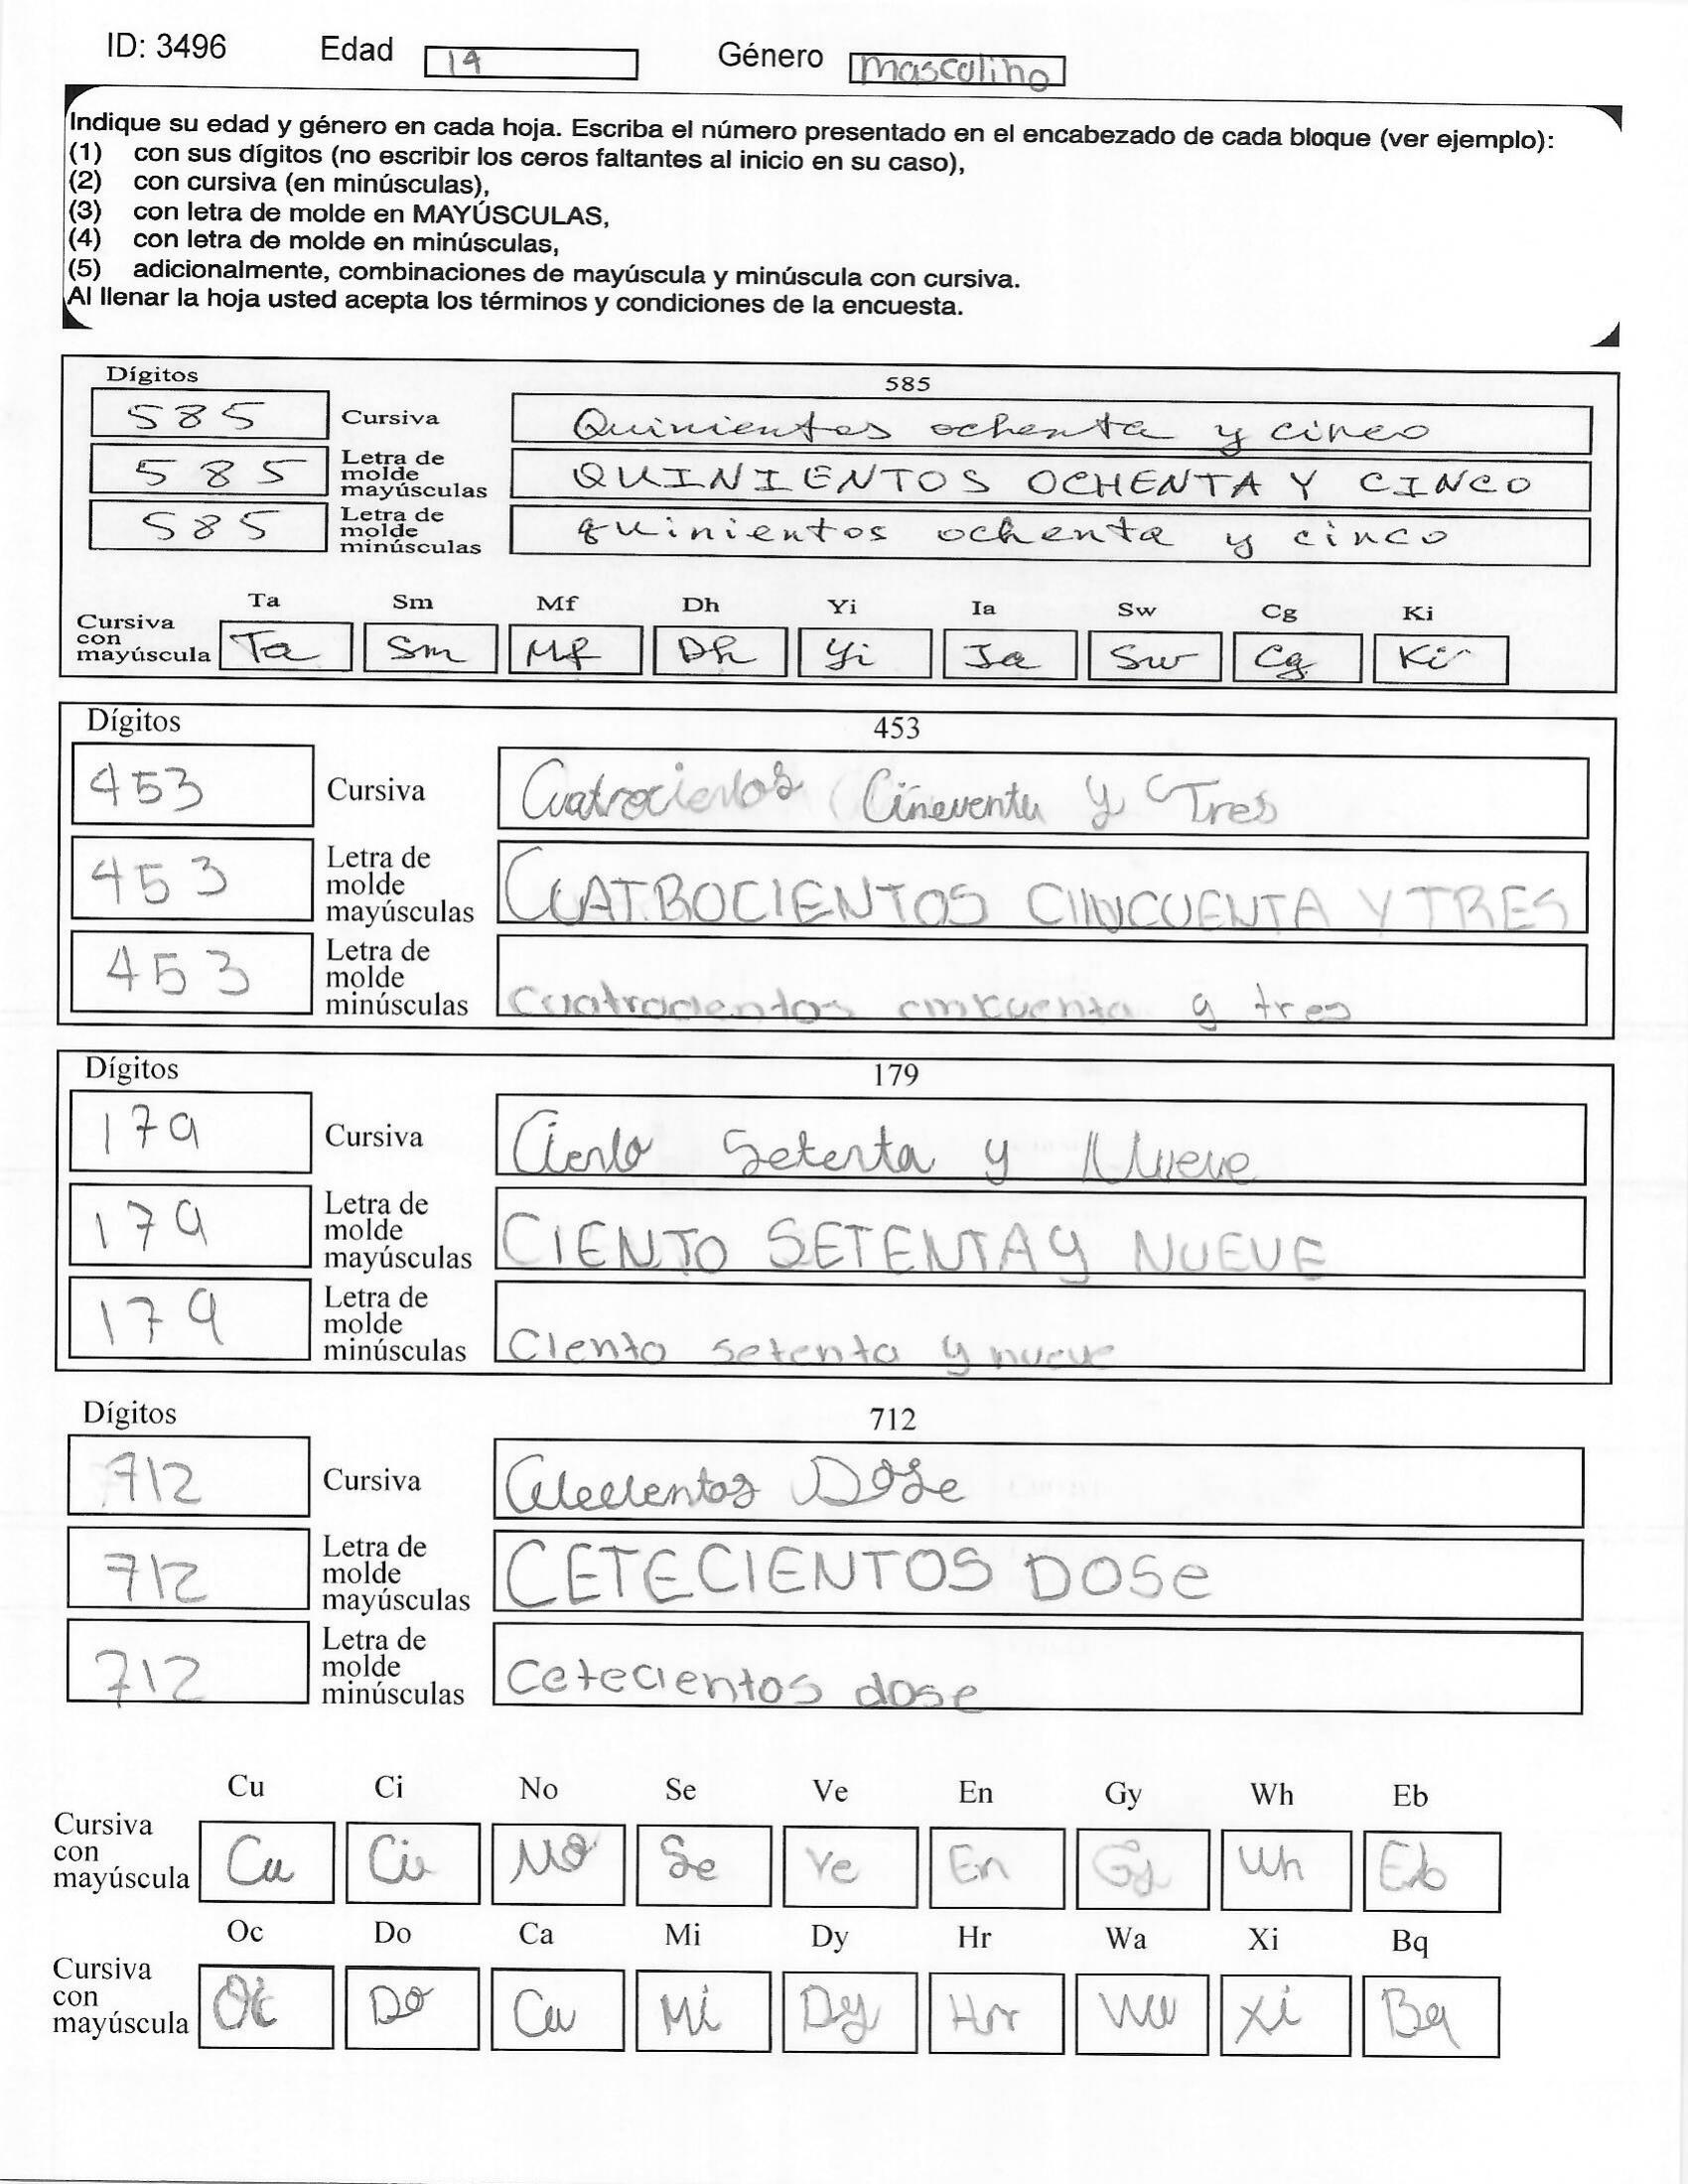 ID: 3496 Edad 14 Género masculino
Indique su edad y género en cada hoja. Escriba el número presentado en el encabezado de cada bloque (ver ejemplo):
(1) con sus dígitos (no escribir los ceros faltantes al inicio en su caso),
(2) con cursiva (en minúsculas),
(3) con letra de molde en MAYÚSCULAS,
(4) con letra de molde en minúsculas,
(5) adicionalmente, combinaciones de mayúscula y minúscula con cursiva.
Al llenar la hoja usted acepta los términos y condiciones de la encuesta.
Dígitos 585
585 Cursiva Quinientos ochenta y cinco
585 Letra de molde mayúsculas QUINIENTOS OCHENTA Y CINCO
585 Letra de molde minúsculas quinientos ochenta y cinco
Ta Sm Mf Dh Yi Ia Sw Cg Ki
Cursiva con mayúscula Ta Sm Mf Dh Yi Ia Sw Cg Ki
Dígitos 453
453 Cursiva Cuatrocientos Cincuenta y Tres
453 Letra de molde mayúsculas CUATROCIENTOS CINCUENTA Y TRES
453 Letra de molde minúsculas cuatrocientos cincuenta y tres
Dígitos 179
179 Cursiva Ciento Setenta y Nueve
179 Letra de molde mayúsculas CIENTO SETENTA y NUEVE
179 Letra de molde minúsculas Ciento setenta y nueve
Dígitos 712
712 Cursiva Dose
712 Letra de molde mayúsculas CETECIENTOS DOSe
712 Letra de molde minúsculas Cetecientos dose
Cu Ci No Se Ve En Gy Wh Eb
Cursiva con mayúscula Cu Ci No Se Ve En Gy Wh Eb
Oc Do Ca Mi Dy Hr Wa Xi Bq
Cursiva con mayúscula Oc Do Ca Mi Dy Hr Wa Xi Bq